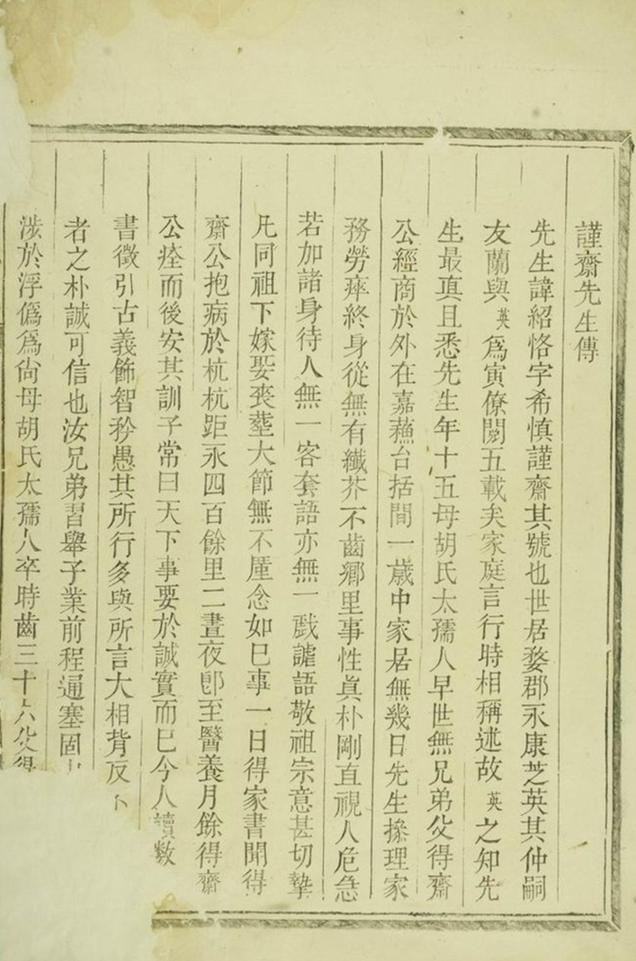 謹齋先生傳
先生諱紹恪字希慎謹齋其號也世居婺郡永康芝英其仲嗣
友蘭與英爲寅僚閱五載矣家庭言行時相稱述故英之知先
生最真且悉先生年十五母胡氏太孺人早世無兄弟父得齋
公經商於外在嘉蘓台括間一歲中家居無幾日先生操理家
務勞瘁終身從無有纖芥不齒鄉里事性真朴剛直視人危急
若加諸身待人無一客套語亦無一戲謔語敬祖宗意甚切摯
凡同祖下嫁娶喪塟大節無不厪念如巳事一日得家書聞得
齋公抱病於杭杭距永四百餘里二晝夜卽至醫養月餘得齋
公痊而後安其訓子常曰天下事要於誠實而巳今人讀數
書徵引古義飾智矜愚其所行多與所言大相背反
者之朴誠可信也汝兄弟習舉子業前程通塞固
涉於浮僞爲尙母胡氏太孺人卒時齒三十六父得